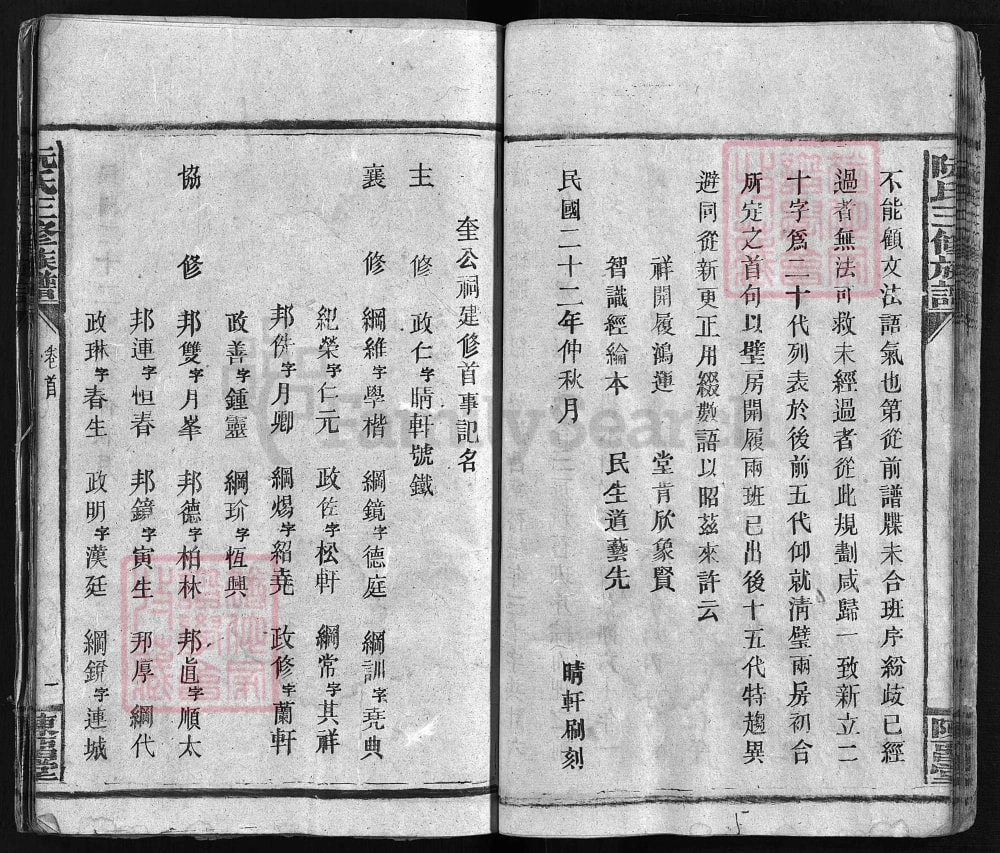 不能顧文法語氣也第從前譜牒未合班序紛歧已經
過者無法可救未經過者從此規劃咸歸一致新立二
十字爲二十代列表於後前五代仰就清璧兩房初合
所定之首句以璧房開履兩班已出後十五代特趨異
避同從新更正用綴數語以昭茲來許云
祥開履鴻運 堂肯欣象賢
智識經綸本 民生道藝先
民國二十二年仲秋月 晴軒刷刻
奎公祠建修首事記名
主修 政仁字晴軒號鐵
襄修 綱維字學楷 綱鏡字德庭 綱訓字堯典
紀榮字仁元 政佐字松軒 綱常字其祥
邦侁字月卿 綱煬字紹堯 政修字蘭軒
政善字鍾靈 綱玠字恆興
協修 邦雙字月峯 邦德字柏林 邦直字順太
邦連字恒春 邦鐃字寅生 邦厚 綱代
政琳字春生 政明字漢廷 綱錛字連城
阮氏三修族譜
卷首
一